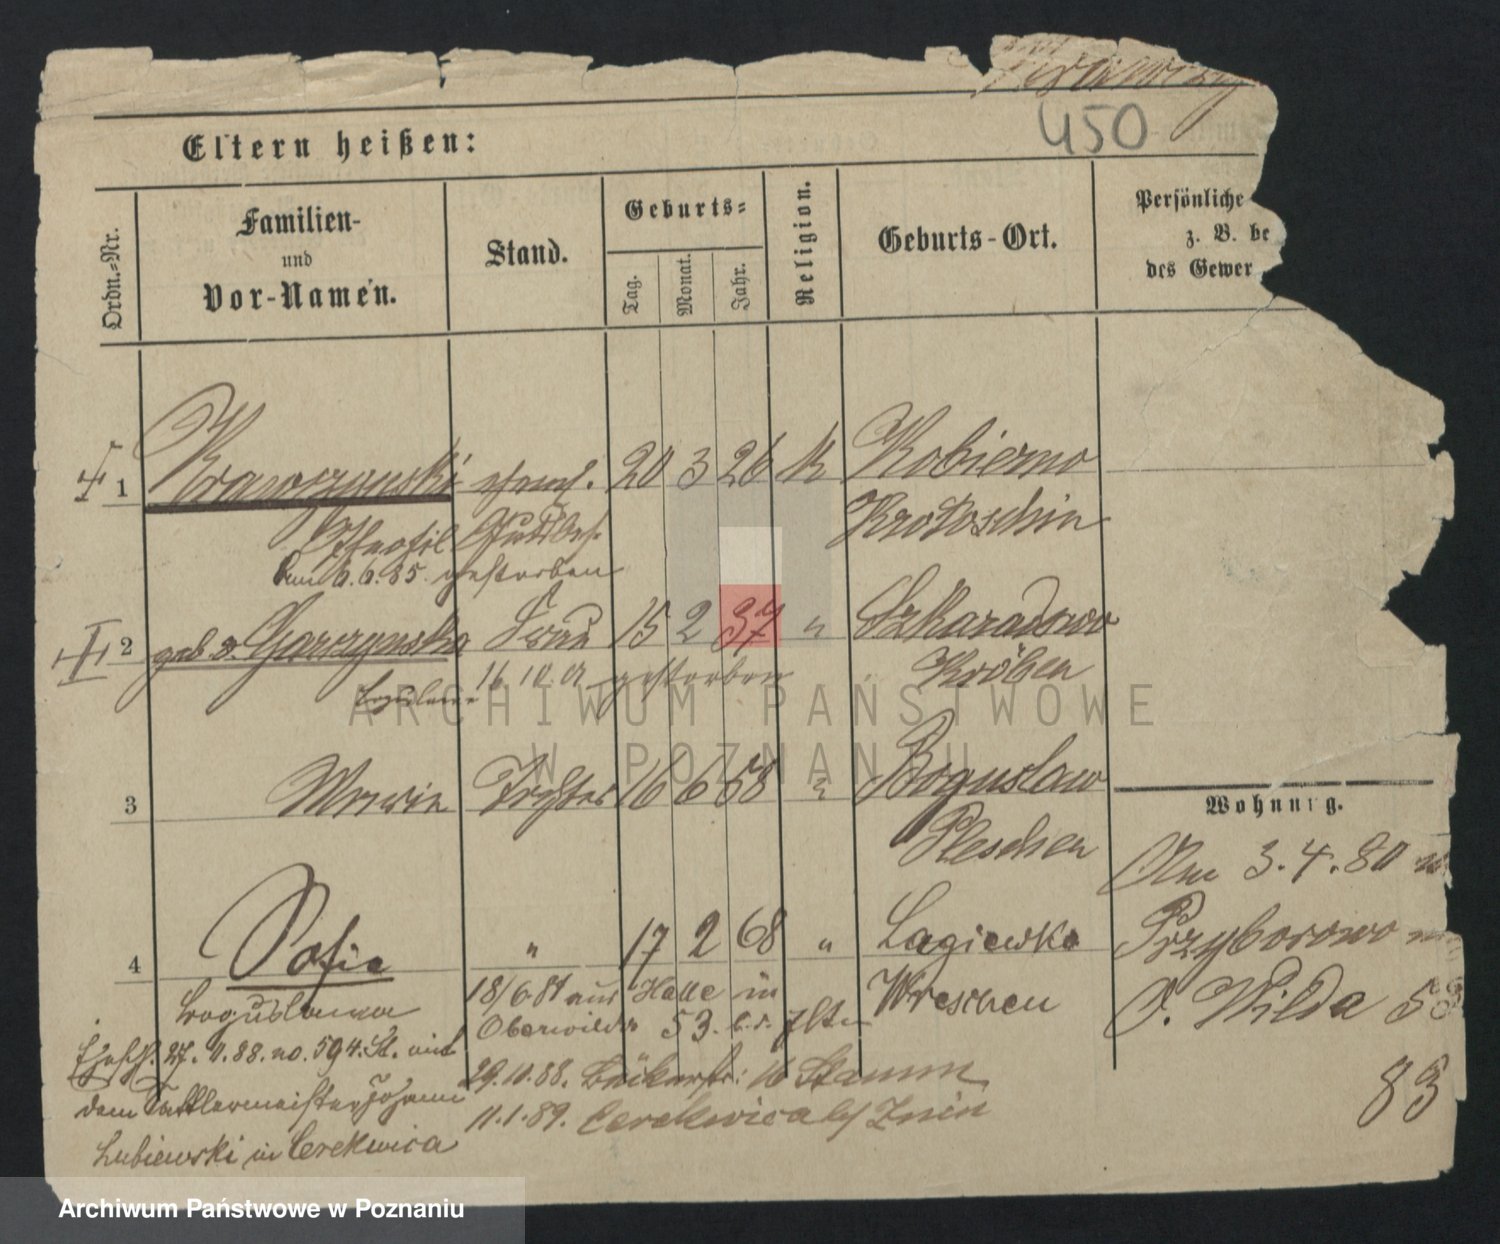 450
Eltern heißen:
Ordn.-Nr.
Familien-
und
Vor-Namen.
Stand.
Geburts-
Tag.
Monat.
Jahr.
Religion.
Geburts-Ort.
Persönliche
z. B. be
des Gewer
1 Krawczynski ehem. 20 3 26 K Kobierno
Theofil Gutsbes. Krotoschin
am 6.6.85. gestorben
2 geb v. Garczynska Frau 15 2 37 " Szkaradowo
16.10. gestorben Kröben
3 Marie Tochter 16 6 58 " Boguslaw
Pleschen
4 Sofie " 17 2 68 " Lagiewko
Boguslawa 18/6 81 aus Halle in Wreschen
Oberwilda 53. b. d. Elt.
Ehesch. 27.11.88. no. 594. St. mit
29.10.88. Bäckerstr: 16 Stamm
dem Sattlermeister Johann
11.1.89. Cerekwica b/ Znin
Lubiewski in Cerekwica
Wohnung.
Am 3.4.80
Przyborowo
O. Wilda 53
83
ARCHIWUM PAŃSTWOWE
W POZNANIU
Archiwum Państwowe w Poznaniu